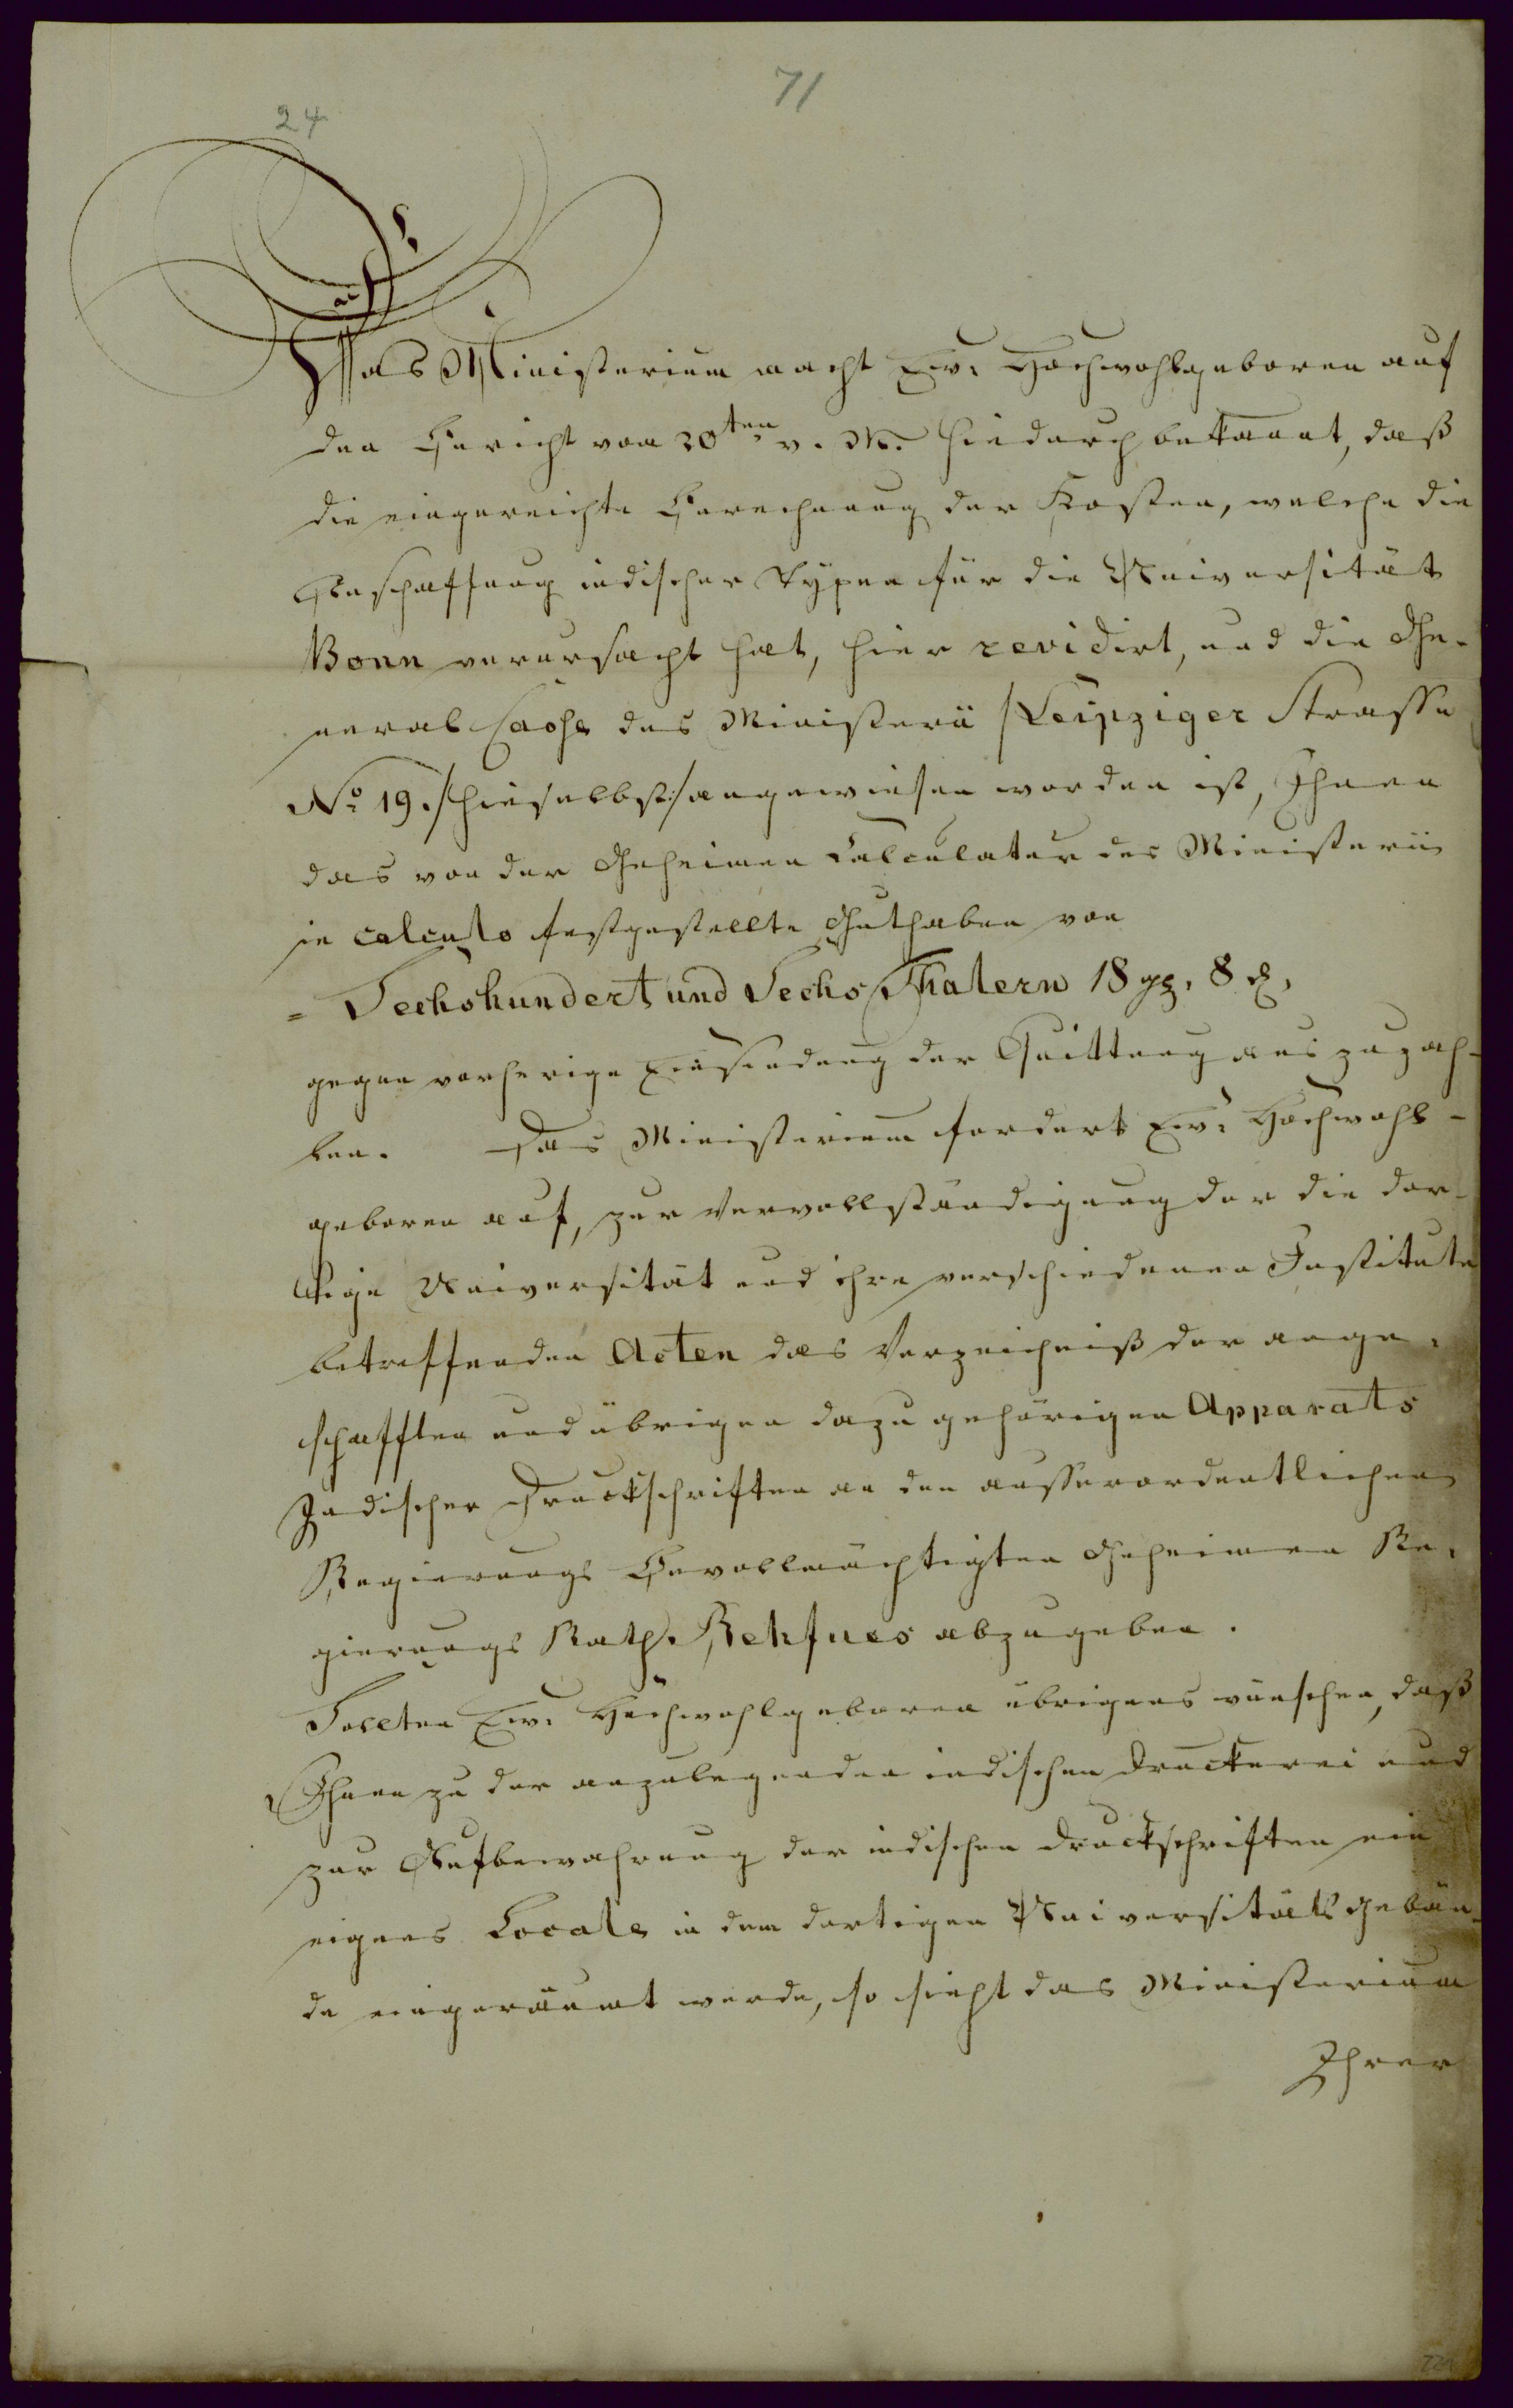 71
24
Das Ministerium macht Ew. Hochwohlgeboren auf
den Bericht vom 20ten v. M. hiedurch bekannt, daß
die eingereichte Berechnung der Kosten, welche die
Anschaffung indischer Typen für die Universität
Bonn verursacht hat, hier revidirt, und die Ge-
neral Casse des Ministerii /Leipziger Strasse
No 19. hieselbst/ angewiesen worden ist, Ihnen
das von der Geheimen Calculatur des Ministerii
in calculo festgestellte Guthaben von
= Sechshundert und Sechs Thalern 18 gg. 8 d.
gegen vorherige Einsendung der Quittung auszuzah-
len. Das Ministerium fordert Ew. Hochwohl-
geboren auf, zur Vervollständigung der die dor-
tige Universität und ihre verschiedenen Institute
betreffenden Acten das Verzeichniß der ange-
schafften und übrigen dazu gehörigen Apparats
Indischer Druckschriften an den ausserordentlichen
Regierungs Bevollmächtigten Geheimen Re-
gierungs Rath Rehfues abzugeben.
Sollten Ew. Hochwohlgeboren übrigens wünschen, daß
Ihnen zu der anzulegenden indischen Druckerei und
zur Aufbewahrung der indischen Druckschriften ein
eigenes Locale in dem dortigen Universitäts Gebäu-
de eingeräumt werde, so sieht das Ministerium
Ihrer